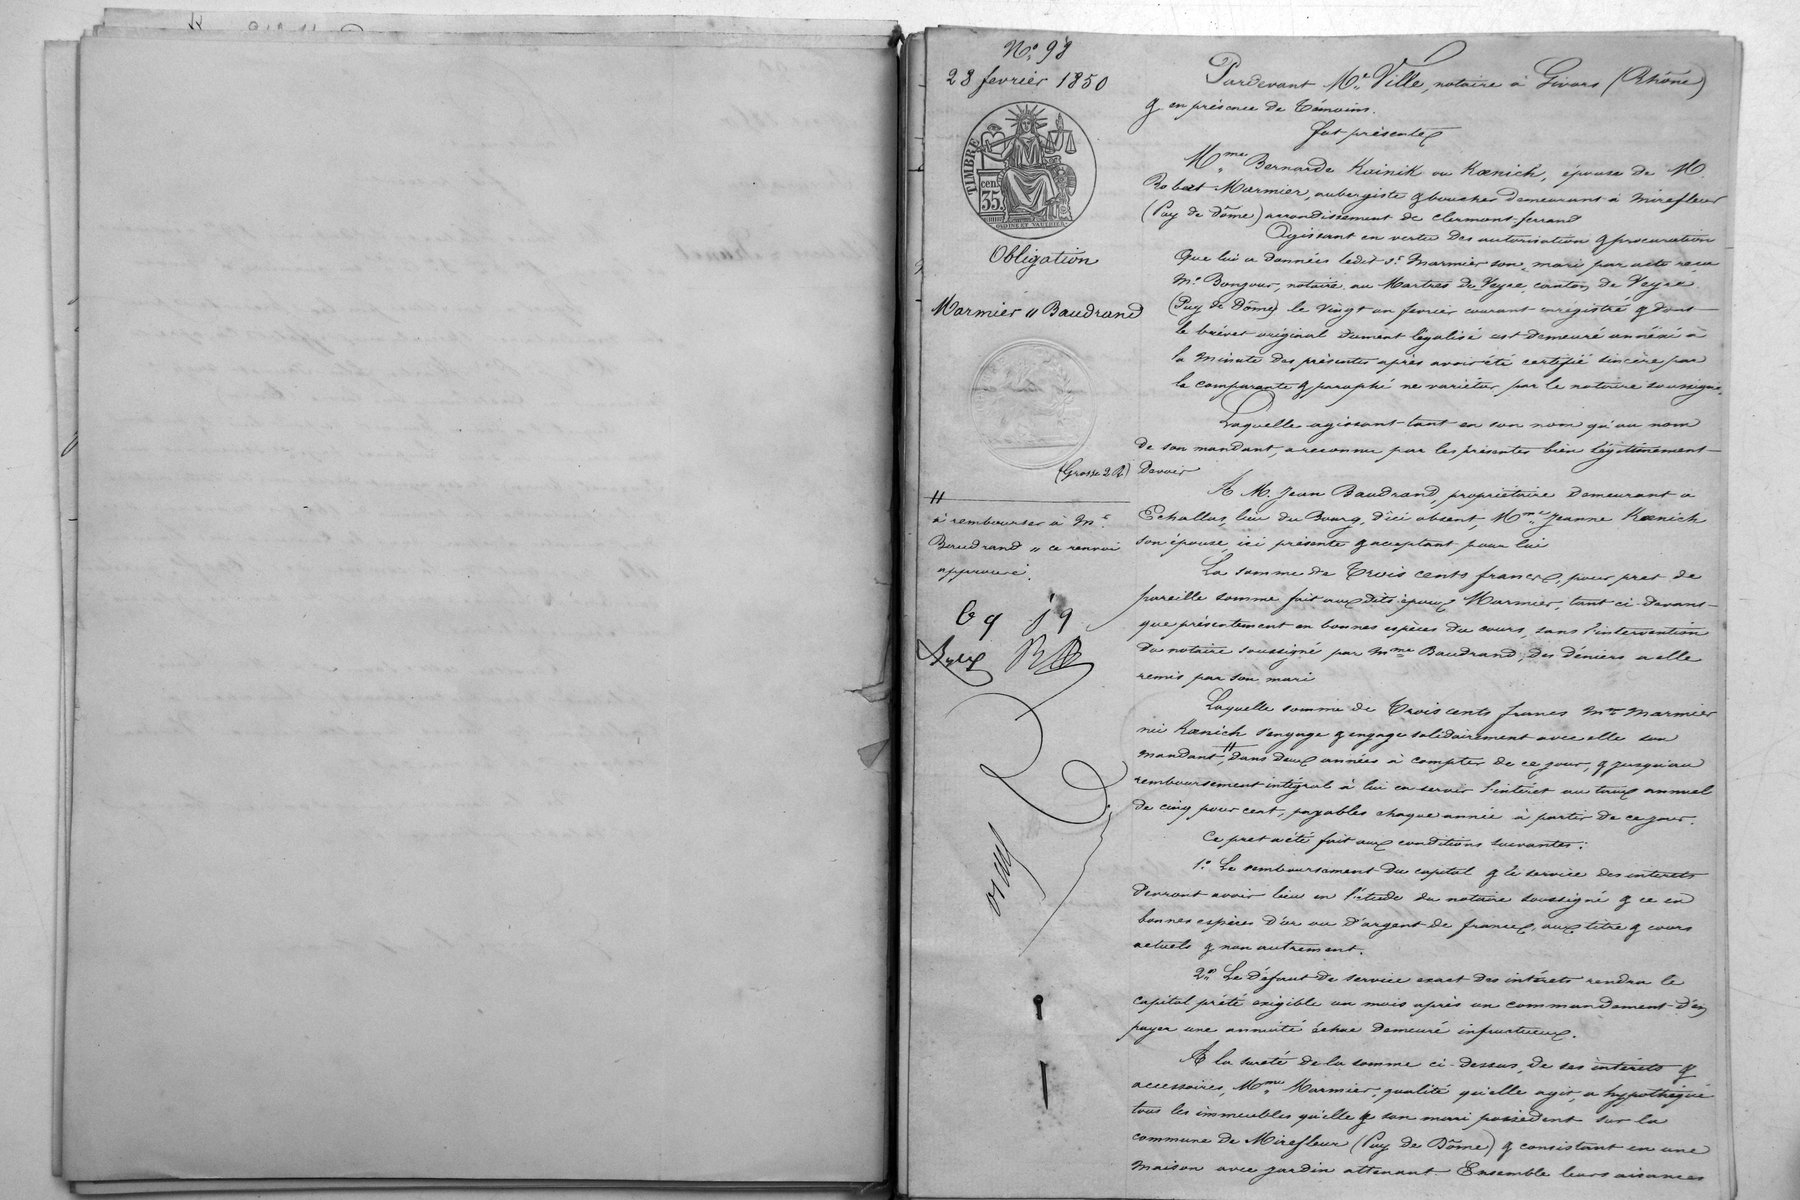 N° 98
28 fevrier 1850
TIMBRE
cen.
35.
Obligation
Marmier // Baudrand
(Grosse 2 R.)
//
à rembourser à Mr
Baudrand // ce renvoi
approuvé.
Pardevant Me Ville, notaire à Givors (Rhône)
& en présence de témoins.
fut présente
Mme Bernarde Kuinik ou Kœnich, épouse de M.
Robert Marmier, aubergiste & boucher demeurant à Mirefleur
(Puy de Dôme) arrondissement de Clermont-ferrand
Agissant en vertu des autorisation & procuration
Que lui a données ledit sr Marmier son mari par acte reçu
Me Bonjour, notaire au Martres de Veyre, canton de Veyre
(Puy de Dôme) le vingt un fevrier courant enrégistré & dont
le brévet original dument légalisé est demeuré annéxé à
la minute des présentes après avoir été certifié sincère par
la comparante & paraphé ne variétur par le notaire soussigné.
Laquelle agissant tant en son nom qu'au nom
de son mandant, a reconnu par les présentes bien légitimement
devoir
A M. Jean Baudrand, propriétaire demeurant a
Echallas, lieu du Bourg, d'ici absent, Mme Jeanne Kœnich
son épouse, ici présente & acceptant pour lui
La somme de Trois cents francs, pour pret de
pareille somme fait aux dits époux Marmier, tant ci-devant
que présentement en bonnes espèces du cours, sans l'intervention
du notaire soussigné par Mme Baudrand, des déniers a elle
remis par son mari
Laquelle somme de Trois cents francs Mme Marmier
née Kœnich s'engage & engage solidairement avec elle son
mandant // dans deux années à compter de ce jour, & jusqu'au
remboursement intégral à lui en servir l'intérêt au taux annuel
de cinq pour cent, payables chaque année à partir de ce jour.
Ce pret a été fait aux conditions suivantes:
1° Le remboursement du capital & le service des interets
devront avoir lieu en l'étude du notaire soussigné & ce en
bonnes espèces d'or ou d'argent de france, aux titre & cours
actuels & non autrement.
2° Le défaut de service exact des intérets rendra le
capital prété exigible un mois après un commandement d'en
payer une annuité échue demeuré infructueux.
A la sureté de la somme ci-dessus, de ses intérets &
accessoires, Mme Marmier, qualité qu'elle agit, a hypothéqué
tous les immeubles qu'elle & son mari possèdent sur la
commune de Mirefleur (Puy de Dôme) & consistant en une
maison avec jardin attenant. Ensemble leurs aisances